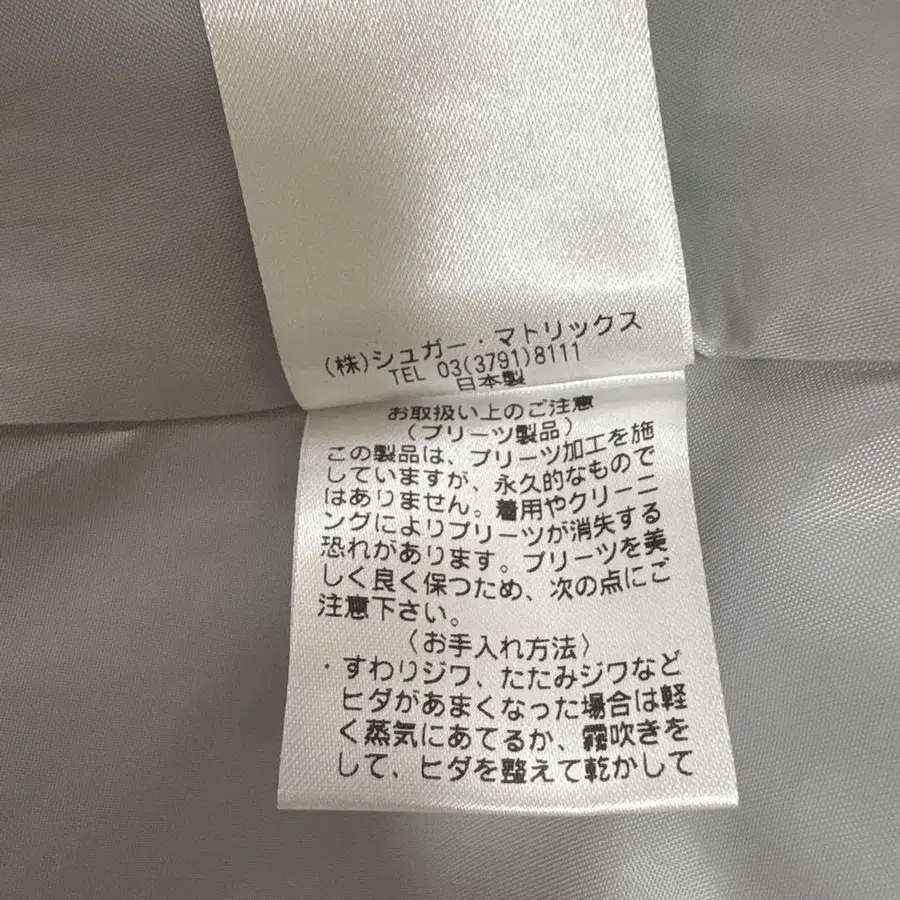 (株)シュガー・マトリックス
TEL 03(3791)8111
日本製
お取扱い上のご注意
(プリーツ製品)
この製品は、プリーツ加工を施
していますが、永久的なもので
はありません。着用やクリーニ
ングによりプリーツが消失する
恐れがあります。プリーツを美
しく良く保つため、次の点にご
注意下さい。
〈お手入れ方法〉
・すわりジワ、たたみジワなど
ヒダがあまくなった場合は軽
く蒸気にあてるか、霧吹きを
して、ヒダを整えて乾かして